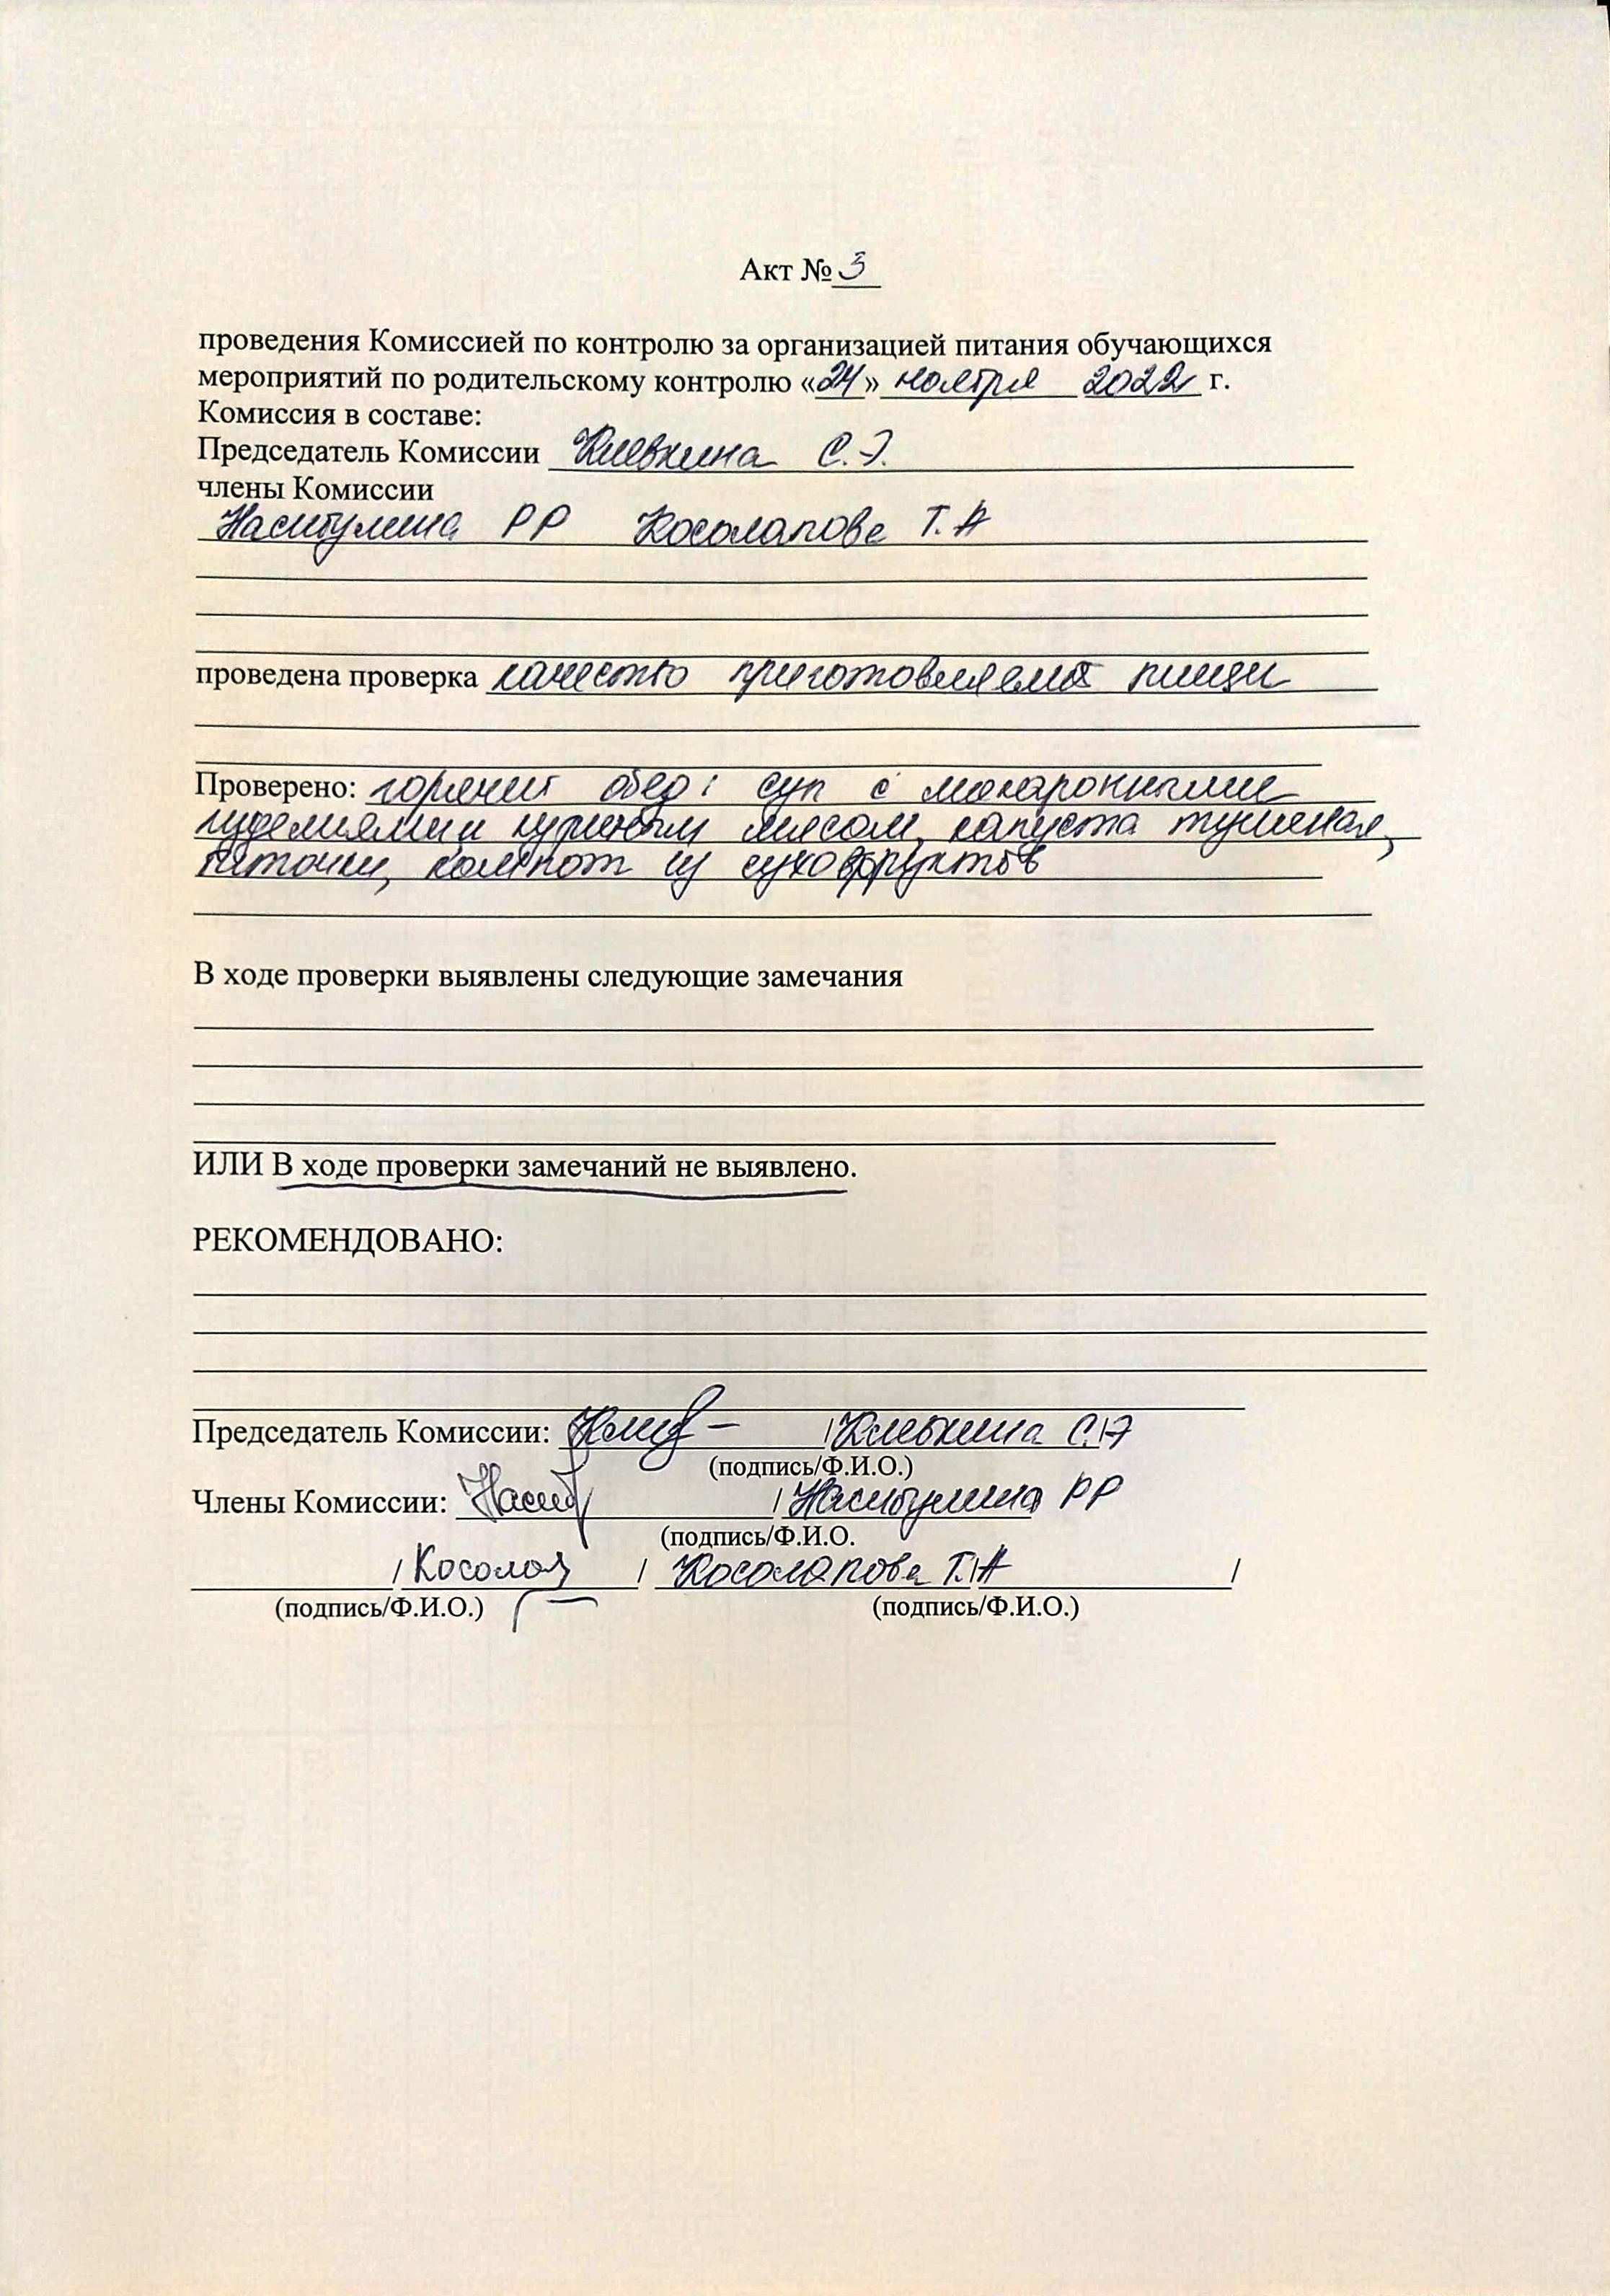 Акт № 3
проведения Комиссией по контролю за организацией питания обучающихся
мероприятий по родительскому контролю «24» ноября 2022 г.
Комиссия в составе:
Председатель Комиссии Клевкина С.Э.
члены Комиссии
Насибулина РР Косолапова Т.А
проведена проверка качество приготовляемой пищи
Проверено: горячий обед: суп с макаронными
изделиями и куриным мясом, капуста тушеная,
биточки, компот из сухофруктов
В ходе проверки выявлены следующие замечания
ИЛИ В ходе проверки замечаний не выявлено.
РЕКОМЕНДОВАНО:
Председатель Комиссии: /Клевкина С.Э
(подпись/Ф.И.О.)
Члены Комиссии: Насиб / Насибулина РР
(подпись/Ф.И.О.
/ Косолап / Косолапова Т.А /
(подпись/Ф.И.О.) (подпись/Ф.И.О.)